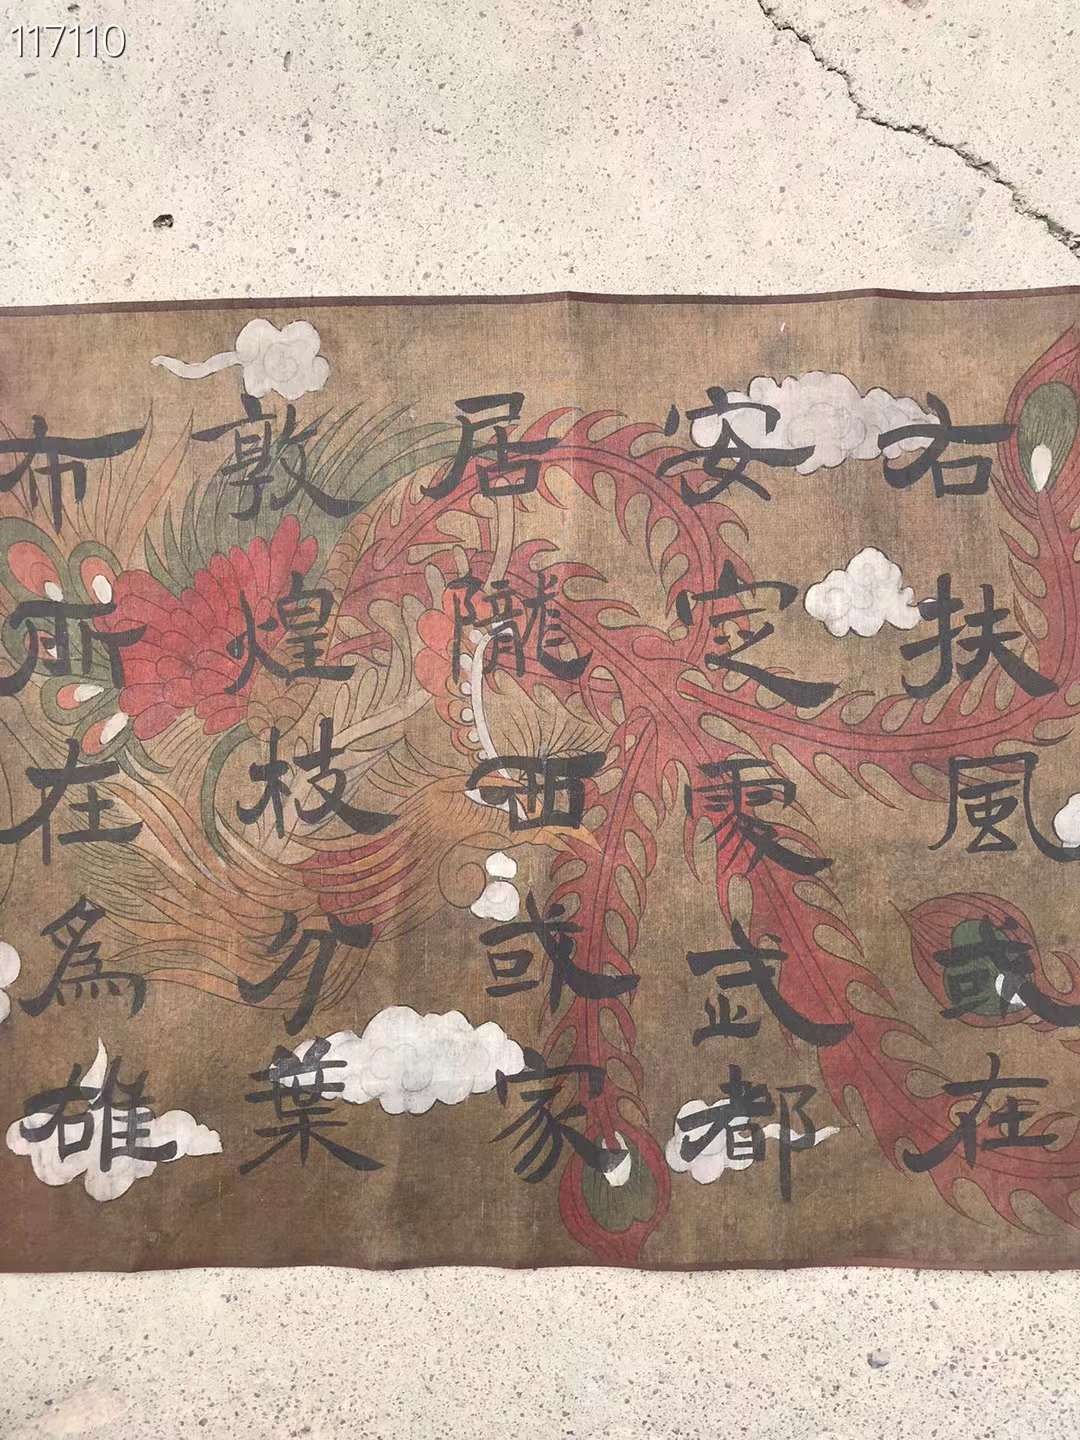 117110
右扶風或在
安定處武都
居隴西或家
敦煌枝分葉
布所在為雄